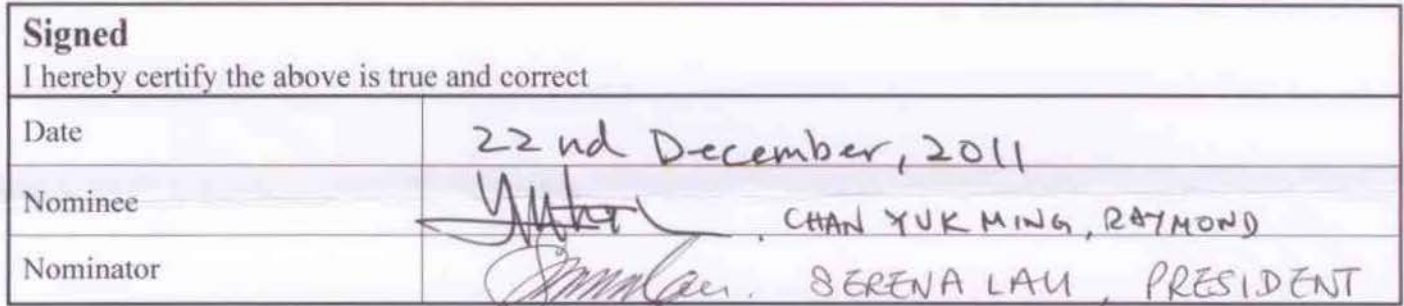 Signed
I hereby certify the above is true and correct
Date 22nd December, 2011
Nominee , CHAN YUK MING, RAYMOND
Nominator SERENA LAU, PRESIDENT